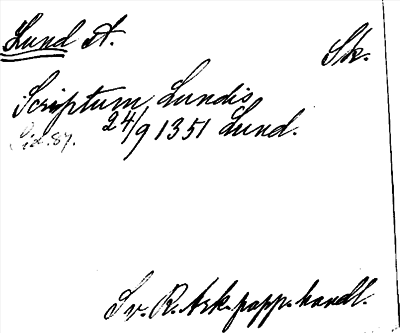 Lund St.
Sk.
Scriptum Lundis
24/9 1351 Lund.
Sid. 87.
Sv. R. Ark. papp. handl.